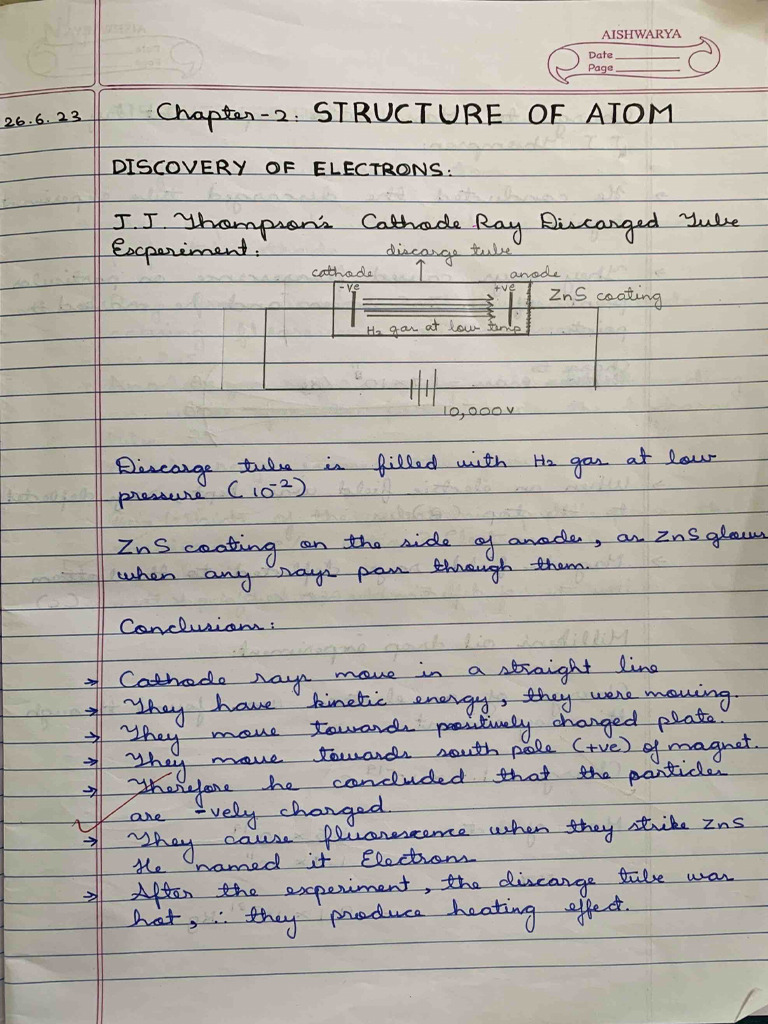 AISHWARYA
Date
Page
26.6.23
Chapter-2: STRUCTURE OF ATOM
DISCOVERY OF ELECTRONS:
J.J. Thompson's Cathode Ray Discarged Tube
Escperiment:
discarge tube
cathode
anode
-ve
+ve
ZnS coating
H2 gas at low temp
10,000v
Discarge tube is filled with H2 gas at low
pressure (10⁻²)
ZnS coating on the side of anode, as ZnS glows
when any rays pass through them.
Conclusions:
→ Cathode rays move in a straight line
→ They have kinetic energy, they were moving.
→ They move towards positively charged plate.
→ They move towards south pole (+ve) of magnet.
→ Therefore he concluded that the particles
are -vely charged.
→ They cause fluorescence when they strike ZnS
He named it Electrons
→ After the experiment, the discarge tube was
hot, ∴ they produce heating effect.